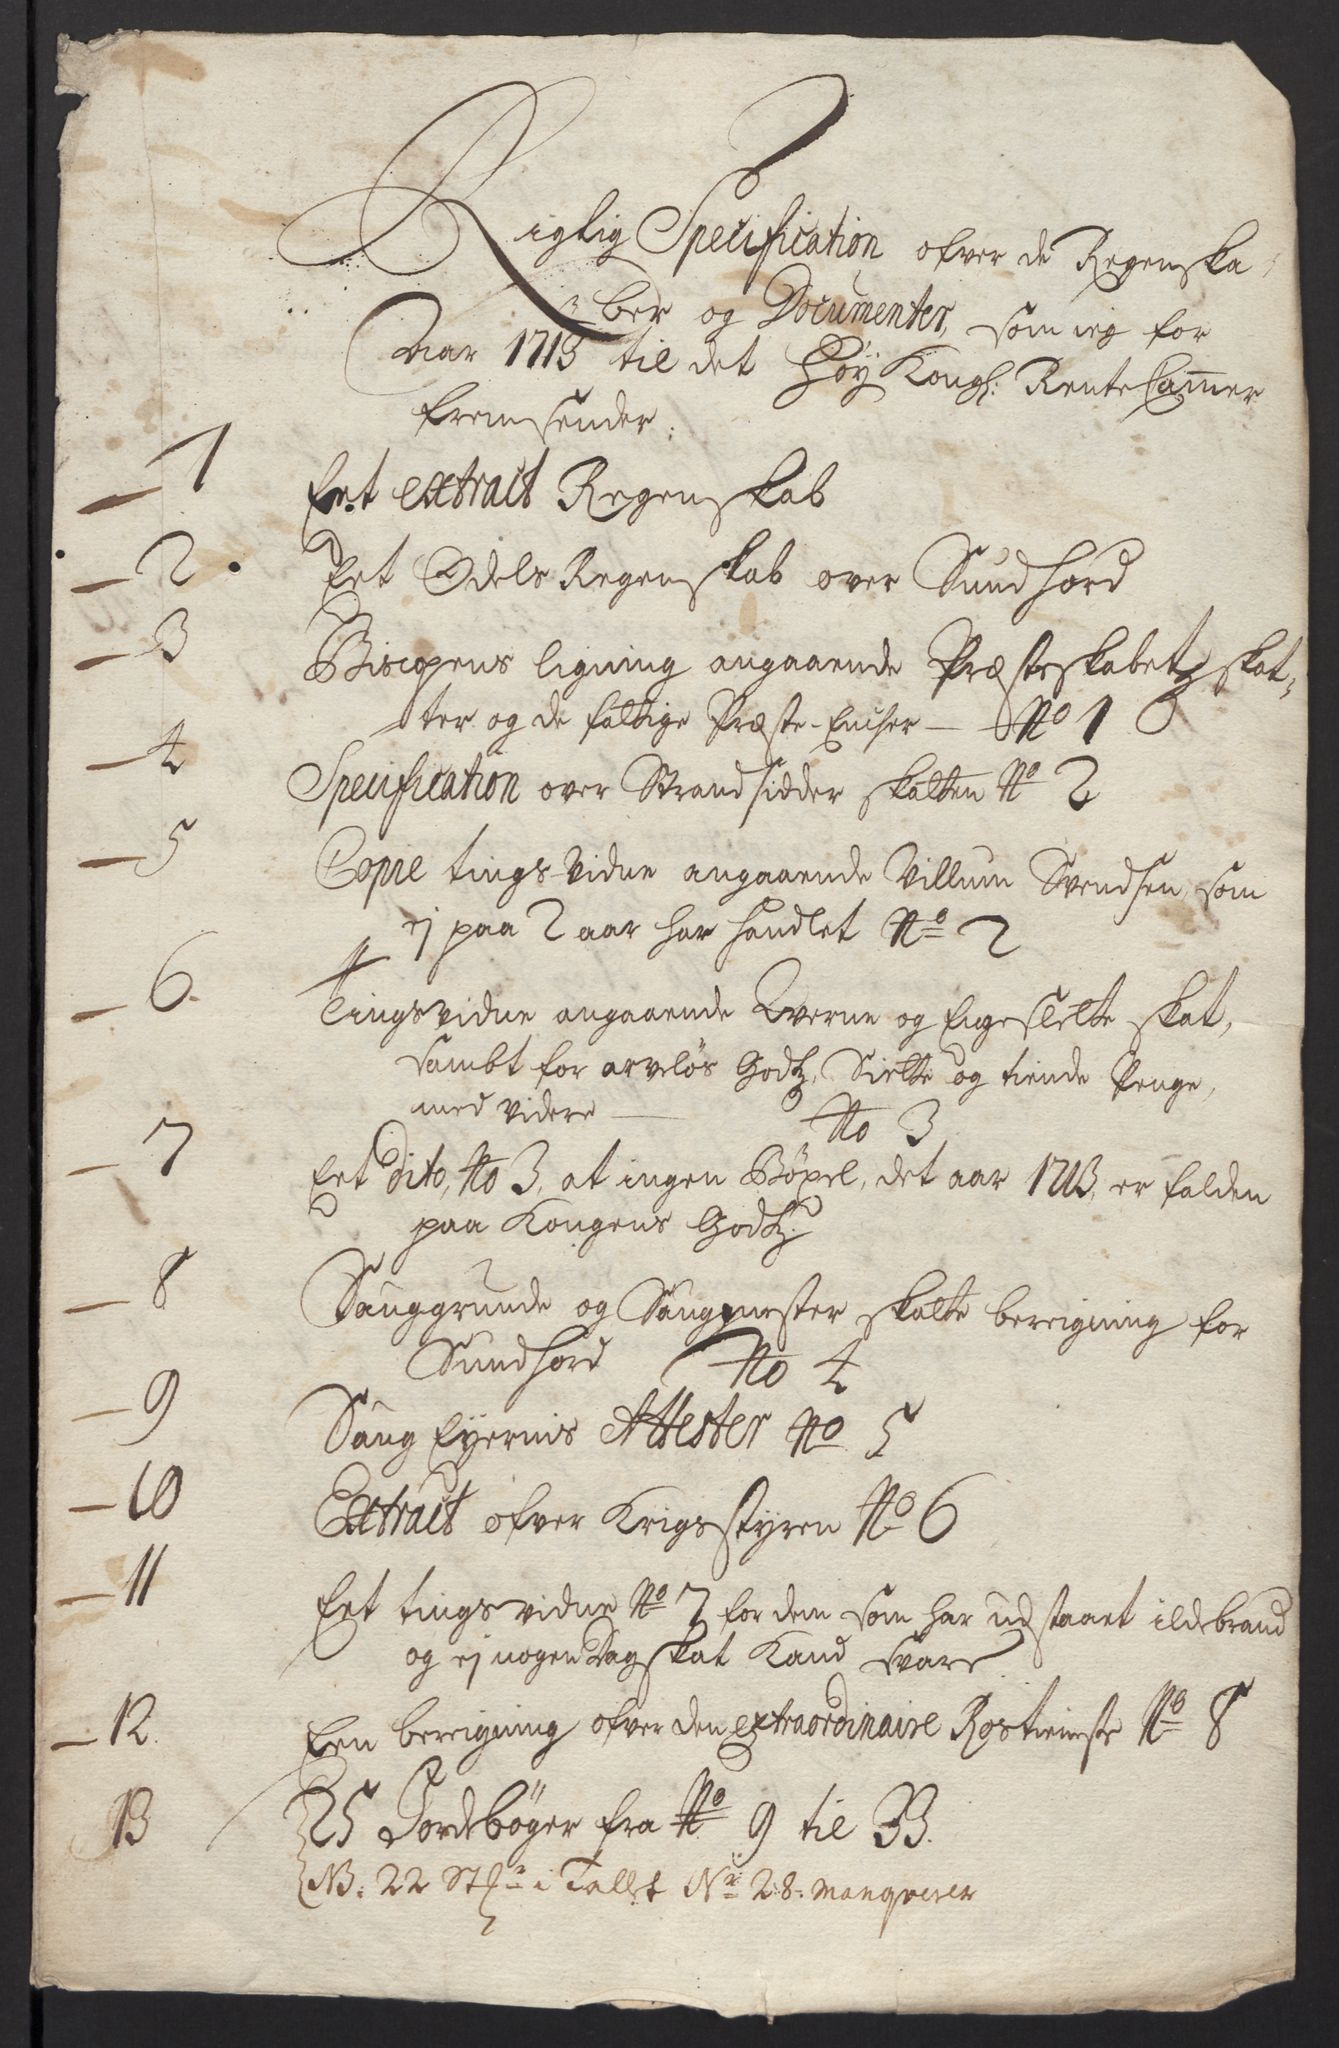 Rigtig Specification ofver de Regenska-
ber og Documenter, som ieg for
Aar 1713 til det Høy Kongl: Rente Cammer
fremsender.
1 Eet extract Regenskab
2 Eet Odels Regenskab over Sundhord
3 Biscopens ligning angaaende Præsteskabetz skat-
ter og de fattige Præste-Encher No 1
4 Specification over Strandsidder skatten No 2
5 Copie tings-vidne angaaende Villum Svendsen, som
ej paa 2 aar har handlet No 2
6 Tingsvidne angaaende Qverne og Engeslette skat,
sambt for arveløs Godtz, Siette og tiende Penge,
med videre No 3
7 Eet dito, No 3, at ingen Bøxel, det aar 1713, er falden
paa Kongens Godtz.
8 Sauggrunde og Saugmester skatte beregning for
Sundhord No 4
9 Saug Eyernis Attester No 5
10 Extract ofver Krigsstyren No 6
11 Eet tingsvidne No 7 for dem som har udstaaet ildebrand
og ej nogen Dagskat kand svare
12 Een beregning ofver den extraordinaire Rostieniste No 8
13 25 Jordebøger fra No 9 til 33.
NB: 22 St: i Tallet Nr 28: manqverer